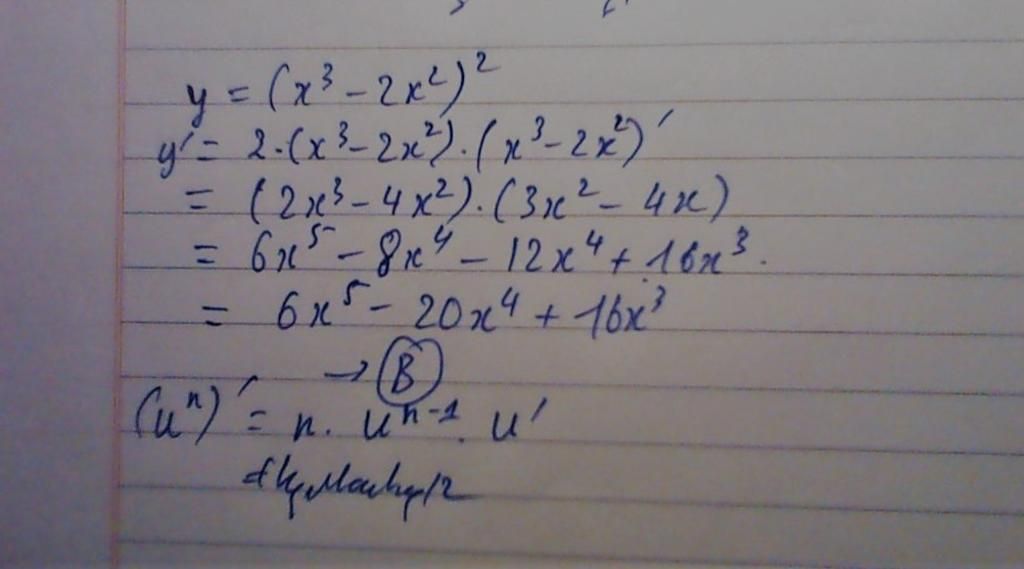 y = (x³ - 2x²)²
y' = 2.(x³ - 2x²).(x³ - 2x²)'
= (2x³ - 4x²).(3x² - 4x)
= 6x⁵ - 8x⁴ - 12x⁴ + 16x³.
= 6x⁵ - 20x⁴ + 16x³
→ B
(uⁿ)' = n. uⁿ⁻¹. u'